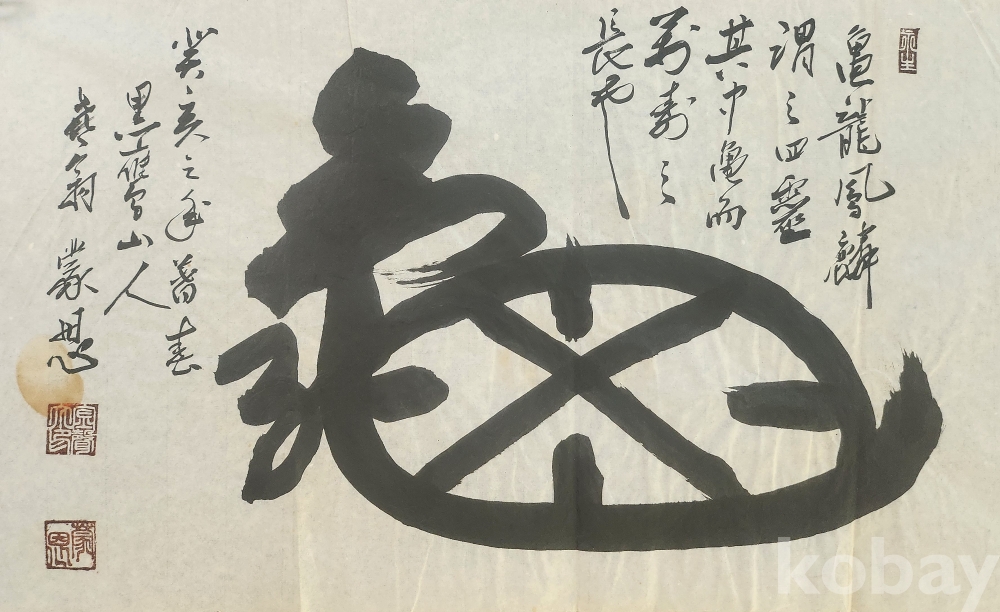 亀龍鳳麟
謂之四靈
其中亀而
萬壽之
長也
龜
癸亥之年春
黑山人
翁 蒙恩
蒙恩
kobay